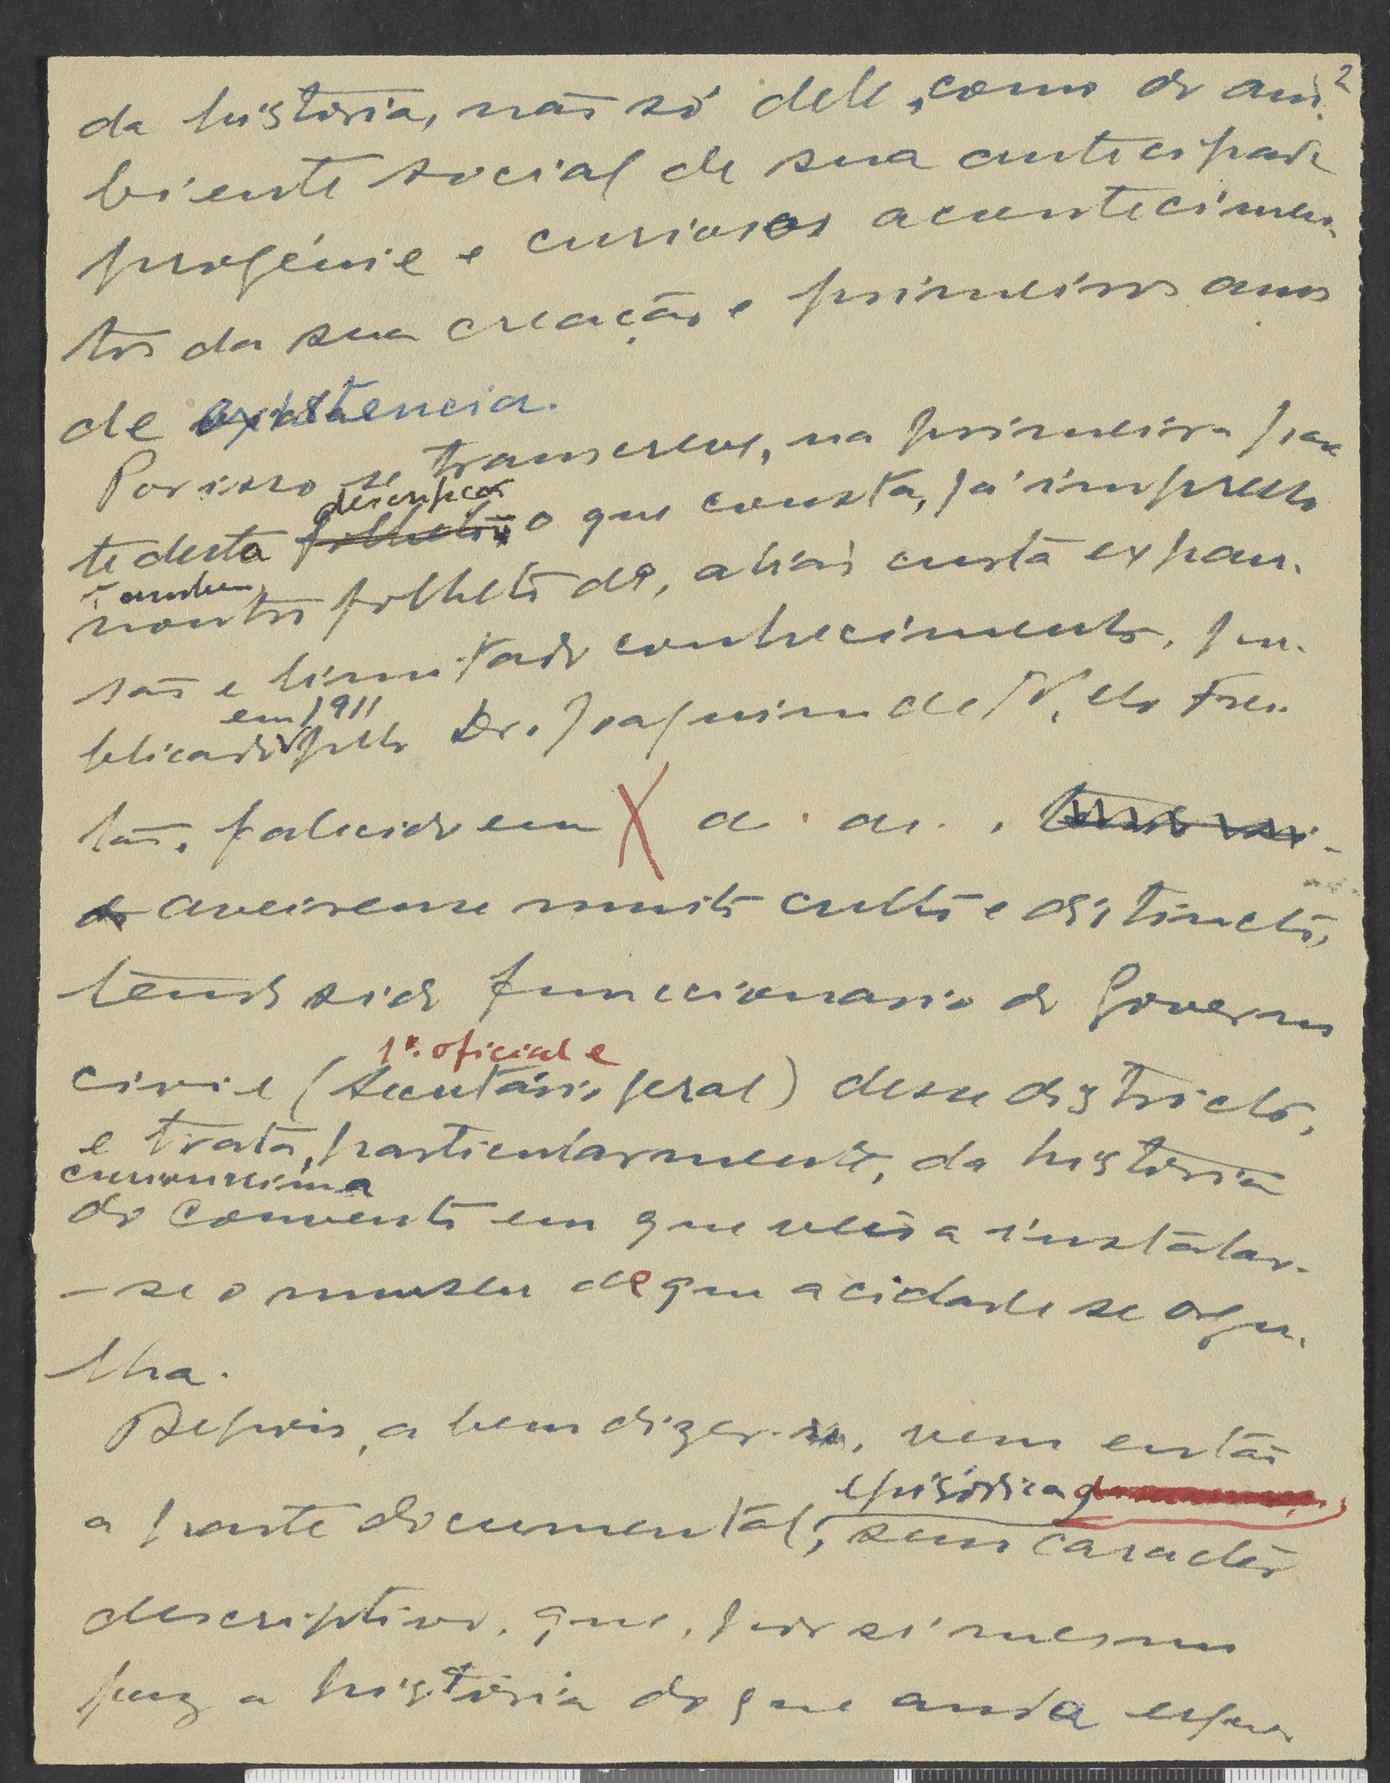 2
da historia, não só delle, como do am-
biente social de sua antecipada
progénie e curiosos acontecimen-
tos da sua creação e primeiros anos
de existencia.
Por isso se transcreve, na primeira par-
te desta descripção o que consta, já impresso
tambem
noutro folheto de, aliás curta expan-
são e limitado conhecimento, pu-
em 1911
blicado pelo Dr. Joaquim de Mello Frei-
tas, falecido em X de de ,
aveirense muito culto e distincto,
tendo sido funccionario do Governo
1º. oficial e
civil (secretário geral) desse districto,
e trata, particularmente, da historia
curiosissima
do convento em que veio a instalar-
-se o museu de que a cidade se orgu-
lha.
Depois, a bem dizer, vem então
episódica
a parte documental, sem caracter
descriptivo, que, por si mesmo
faz a historia do que anda